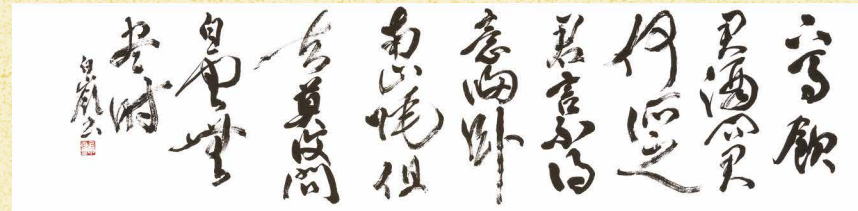 下馬飲
君酒問君
何所之
君言不得
意歸卧
南山陲但
去莫復問
白雲無
盡時